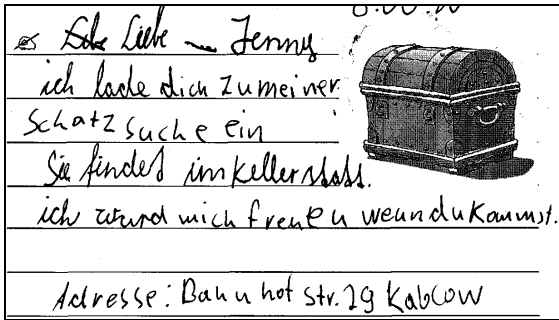 Liebe Jenny
ich lade dich zu meiner
Schatz suche ein
Sie findet im Keller statt.
ich wurd mich freuen wenn du kommst.
Adresse: Bahnhof Str. 29 Kablow